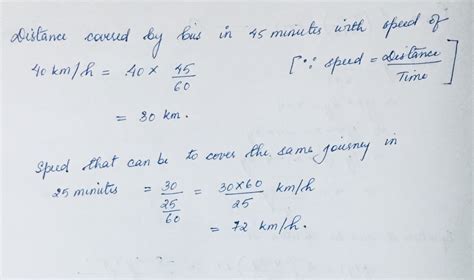 Distance covered by bus in 45 minutes with speed of
40 km/h = 40 × 45/60 [∵ speed = Distance/Time]
= 30 km.
Speed that can be to cover the same journey in
25 minutes = 30/(25/60) = 30×60/25 km/h
= 72 km/h.